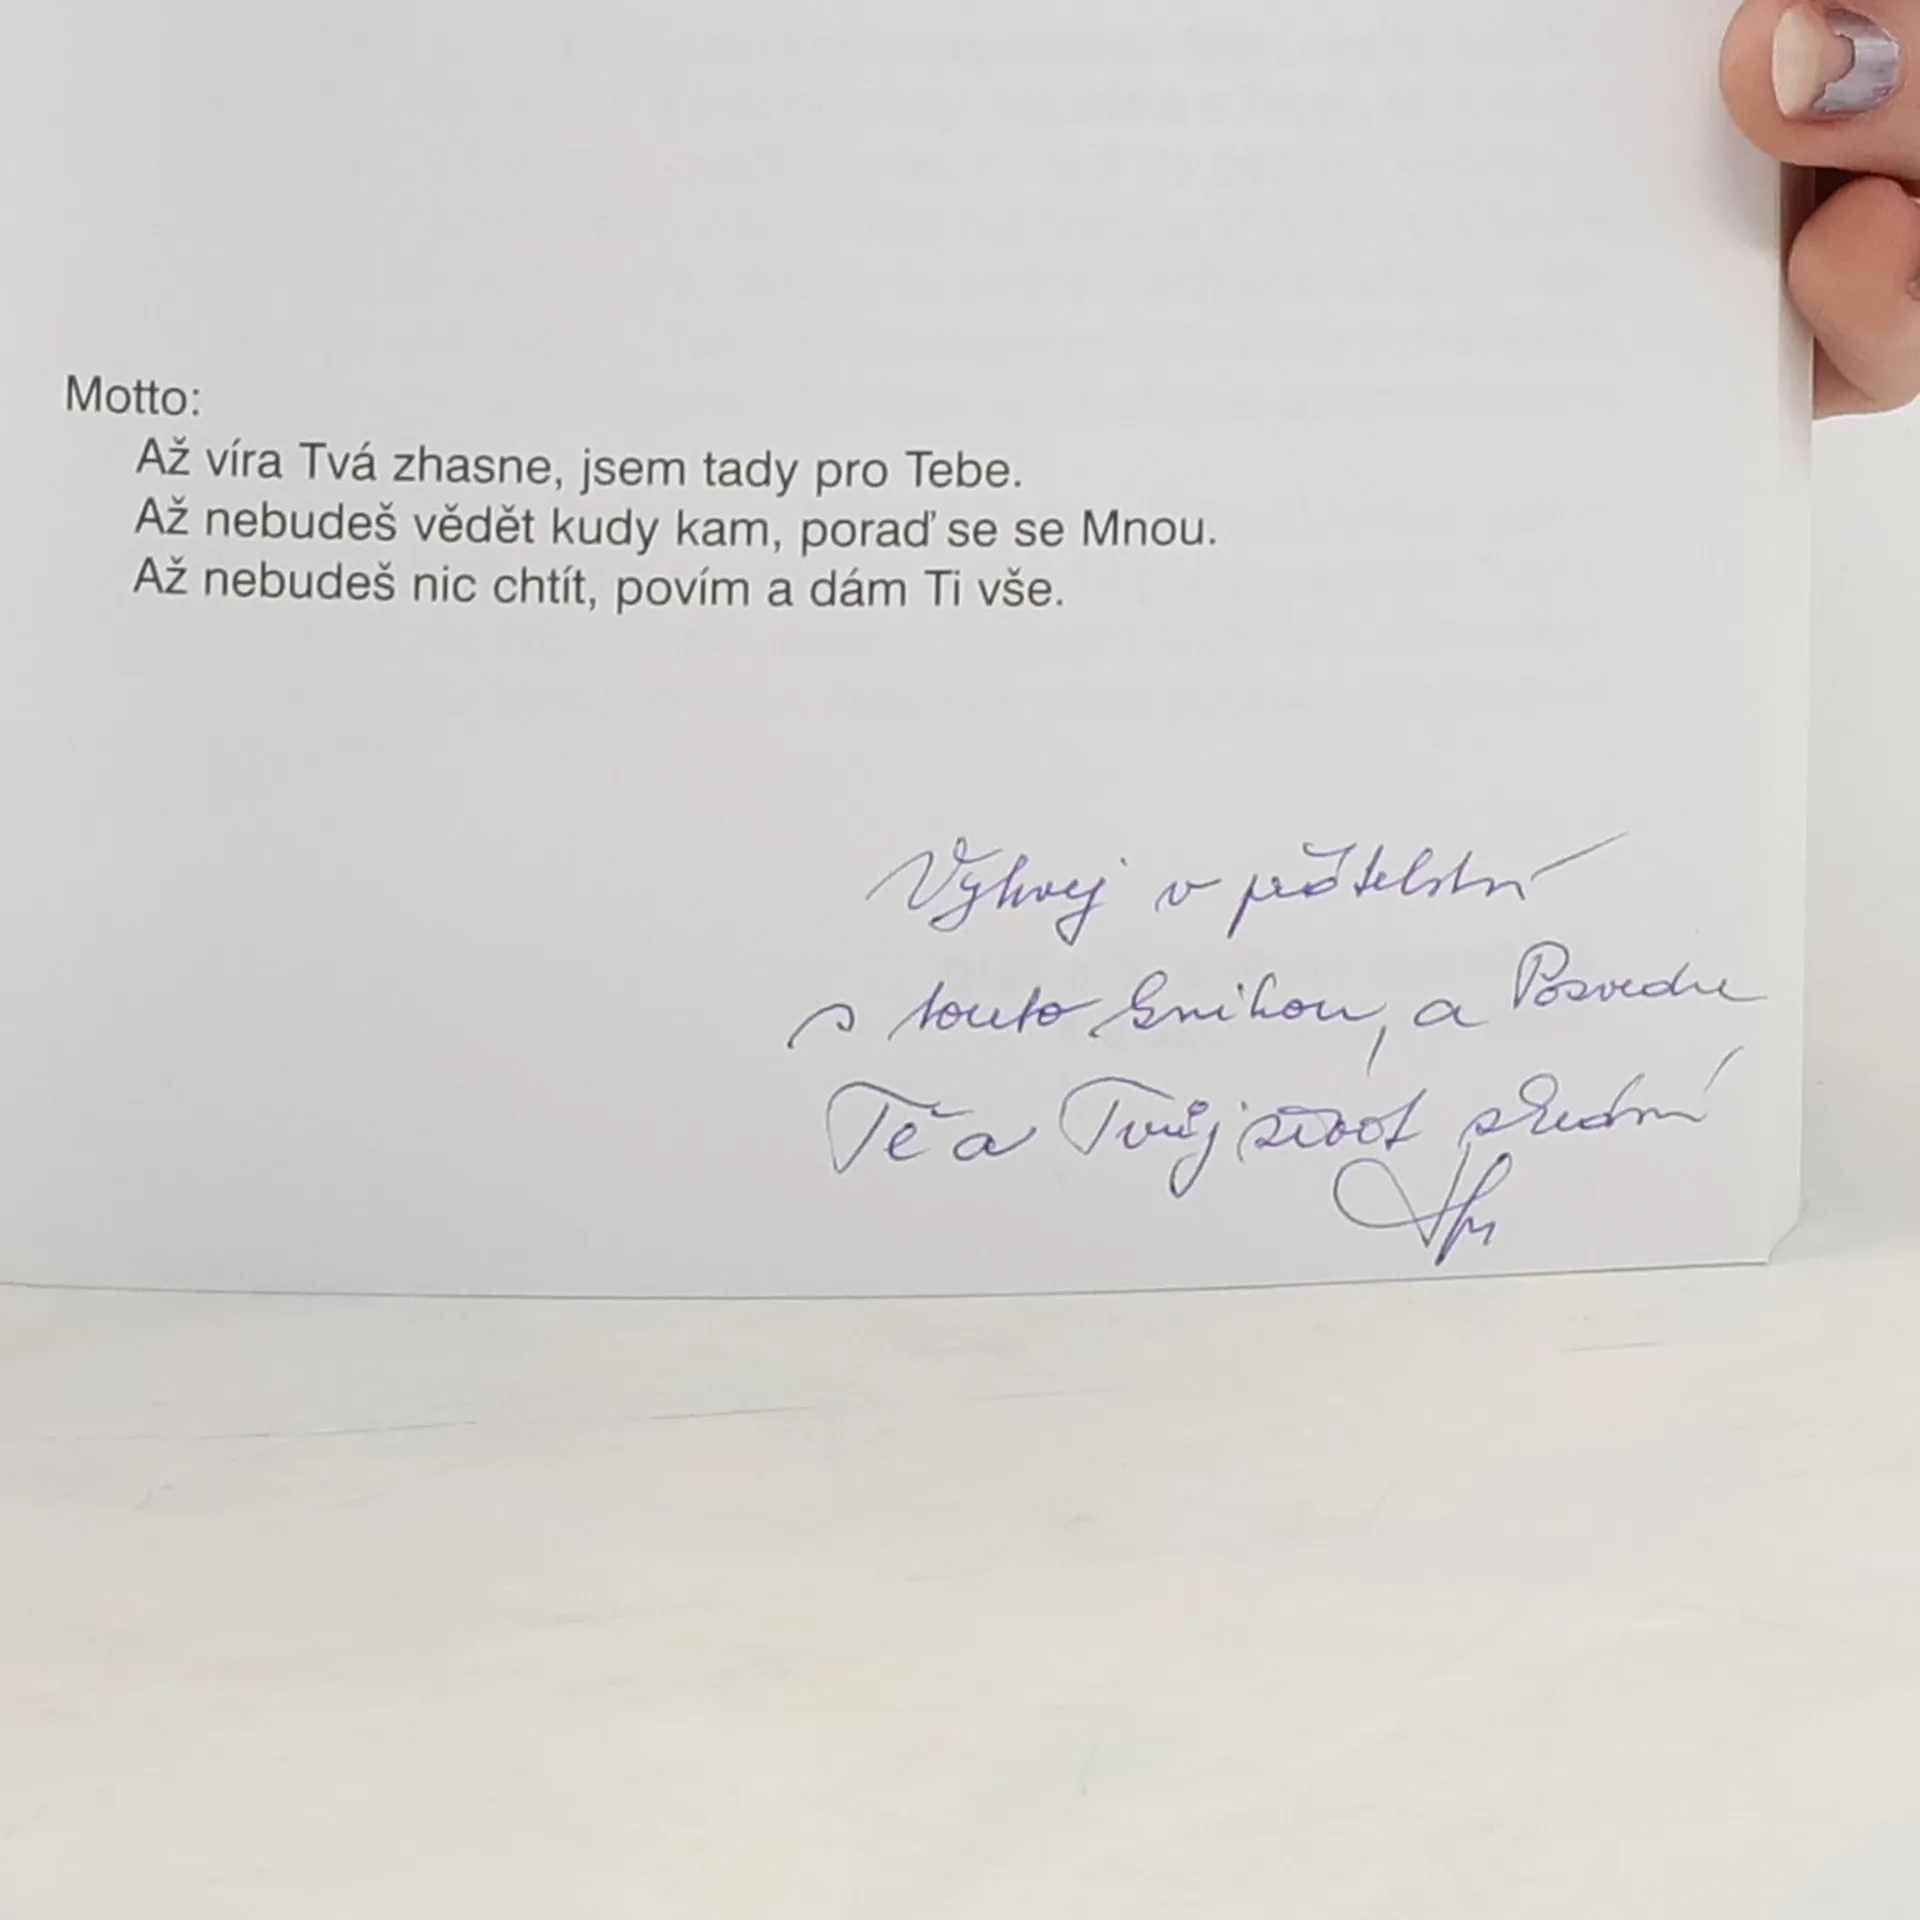 Motto:
Až víra Tvá zhasne, jsem tady pro Tebe.
Až nebudeš vědět kudy kam, poraď se se Mnou.
Až nebudeš nic chtít, povím a dám Ti vše.
Vytrvej v přátelství
s touto Knihou, a Posvedne
Tě a Tvůj život